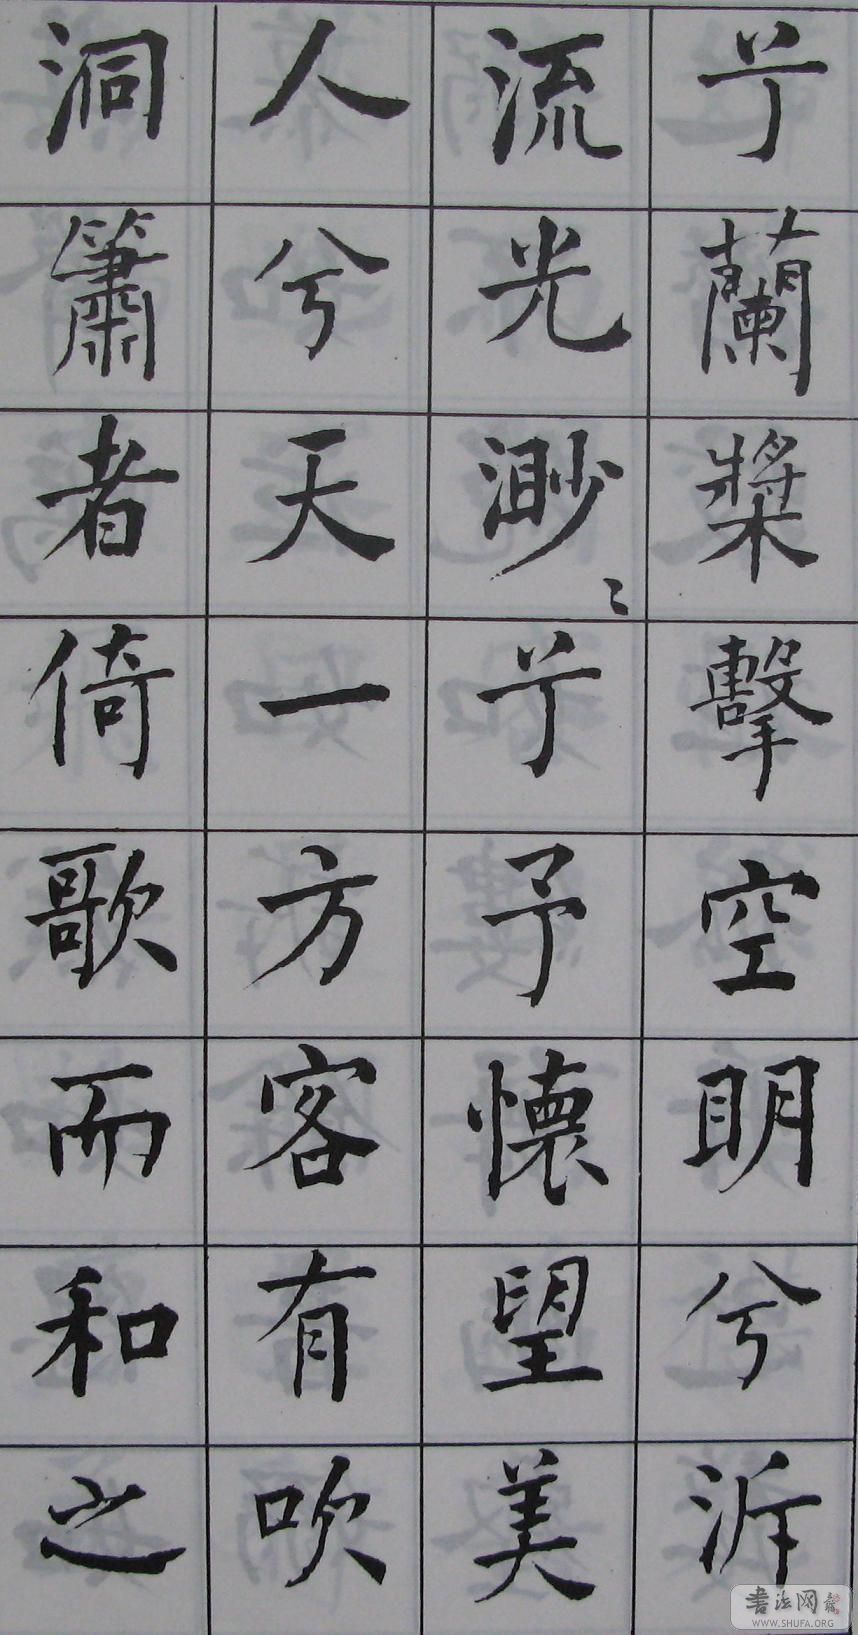 兮蘭槳擊空明兮泝
流光渺〻兮予懷望美
人兮天一方客有吹
洞簫者倚歌而和之
書法网
WWW.SHUFA.ORG